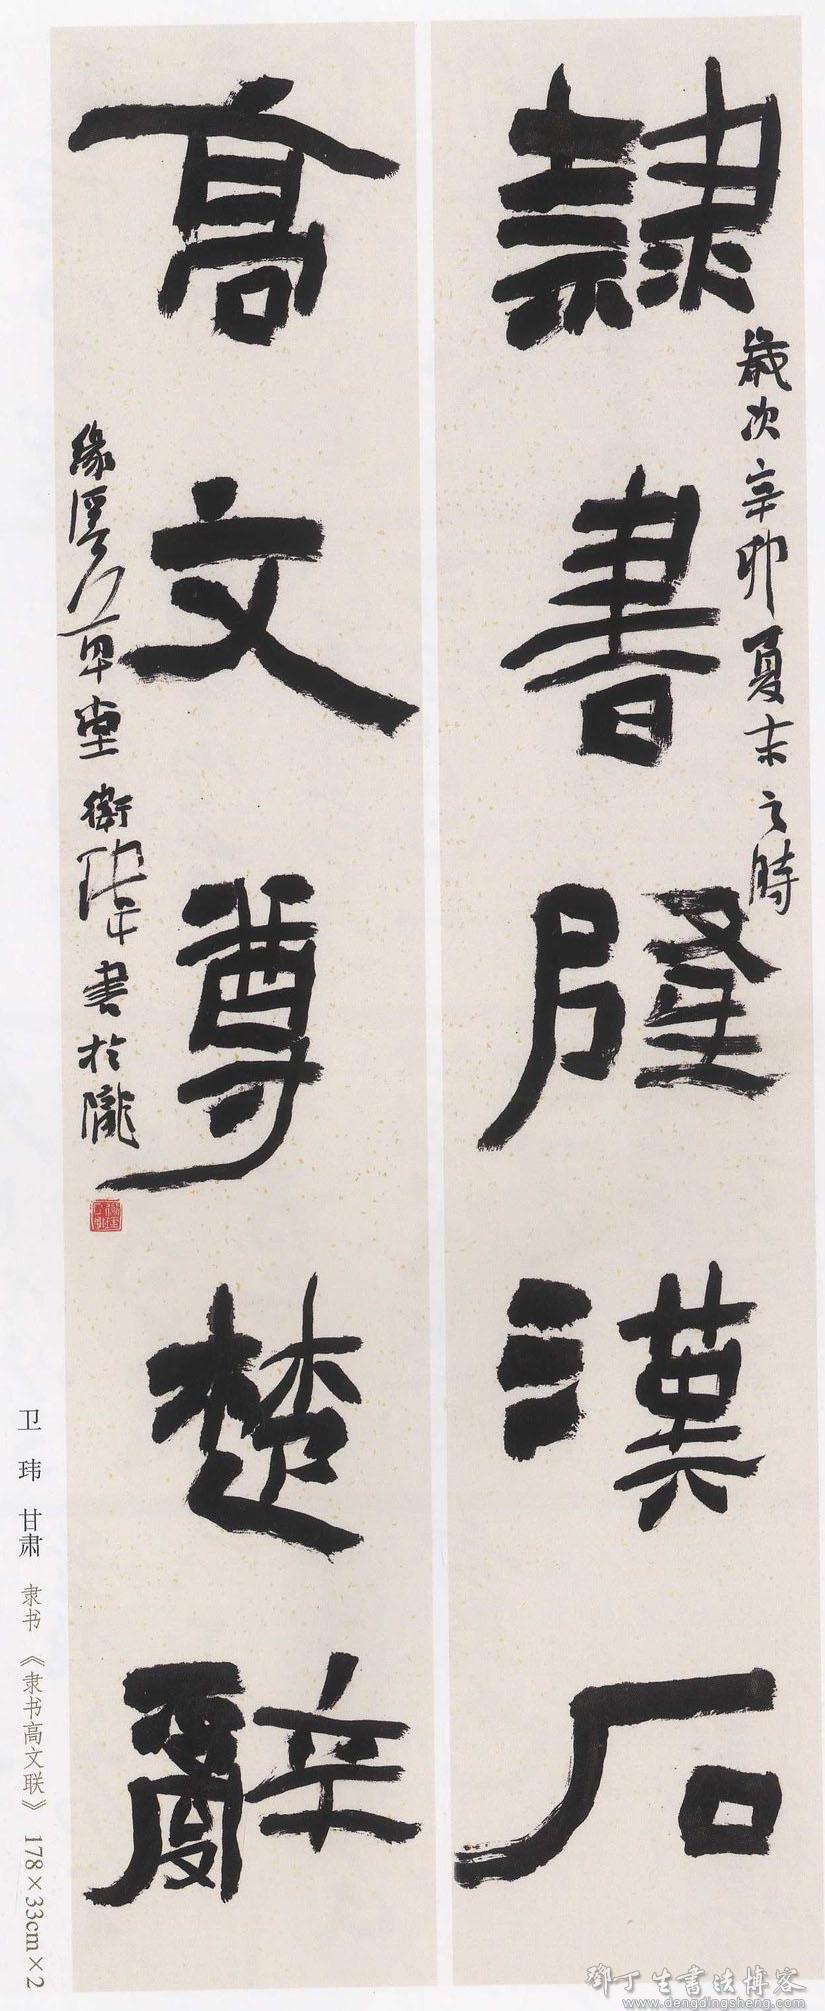 隸書隆漢石
歲次辛卯夏末之時
高文尊楚辭
緣溪草堂衛瑋書於隴
卫 玮 甘肃 隶书 《隶书高文联》 178×33cm×2
鄧丁生書法博客
www.dengdingsheng.com